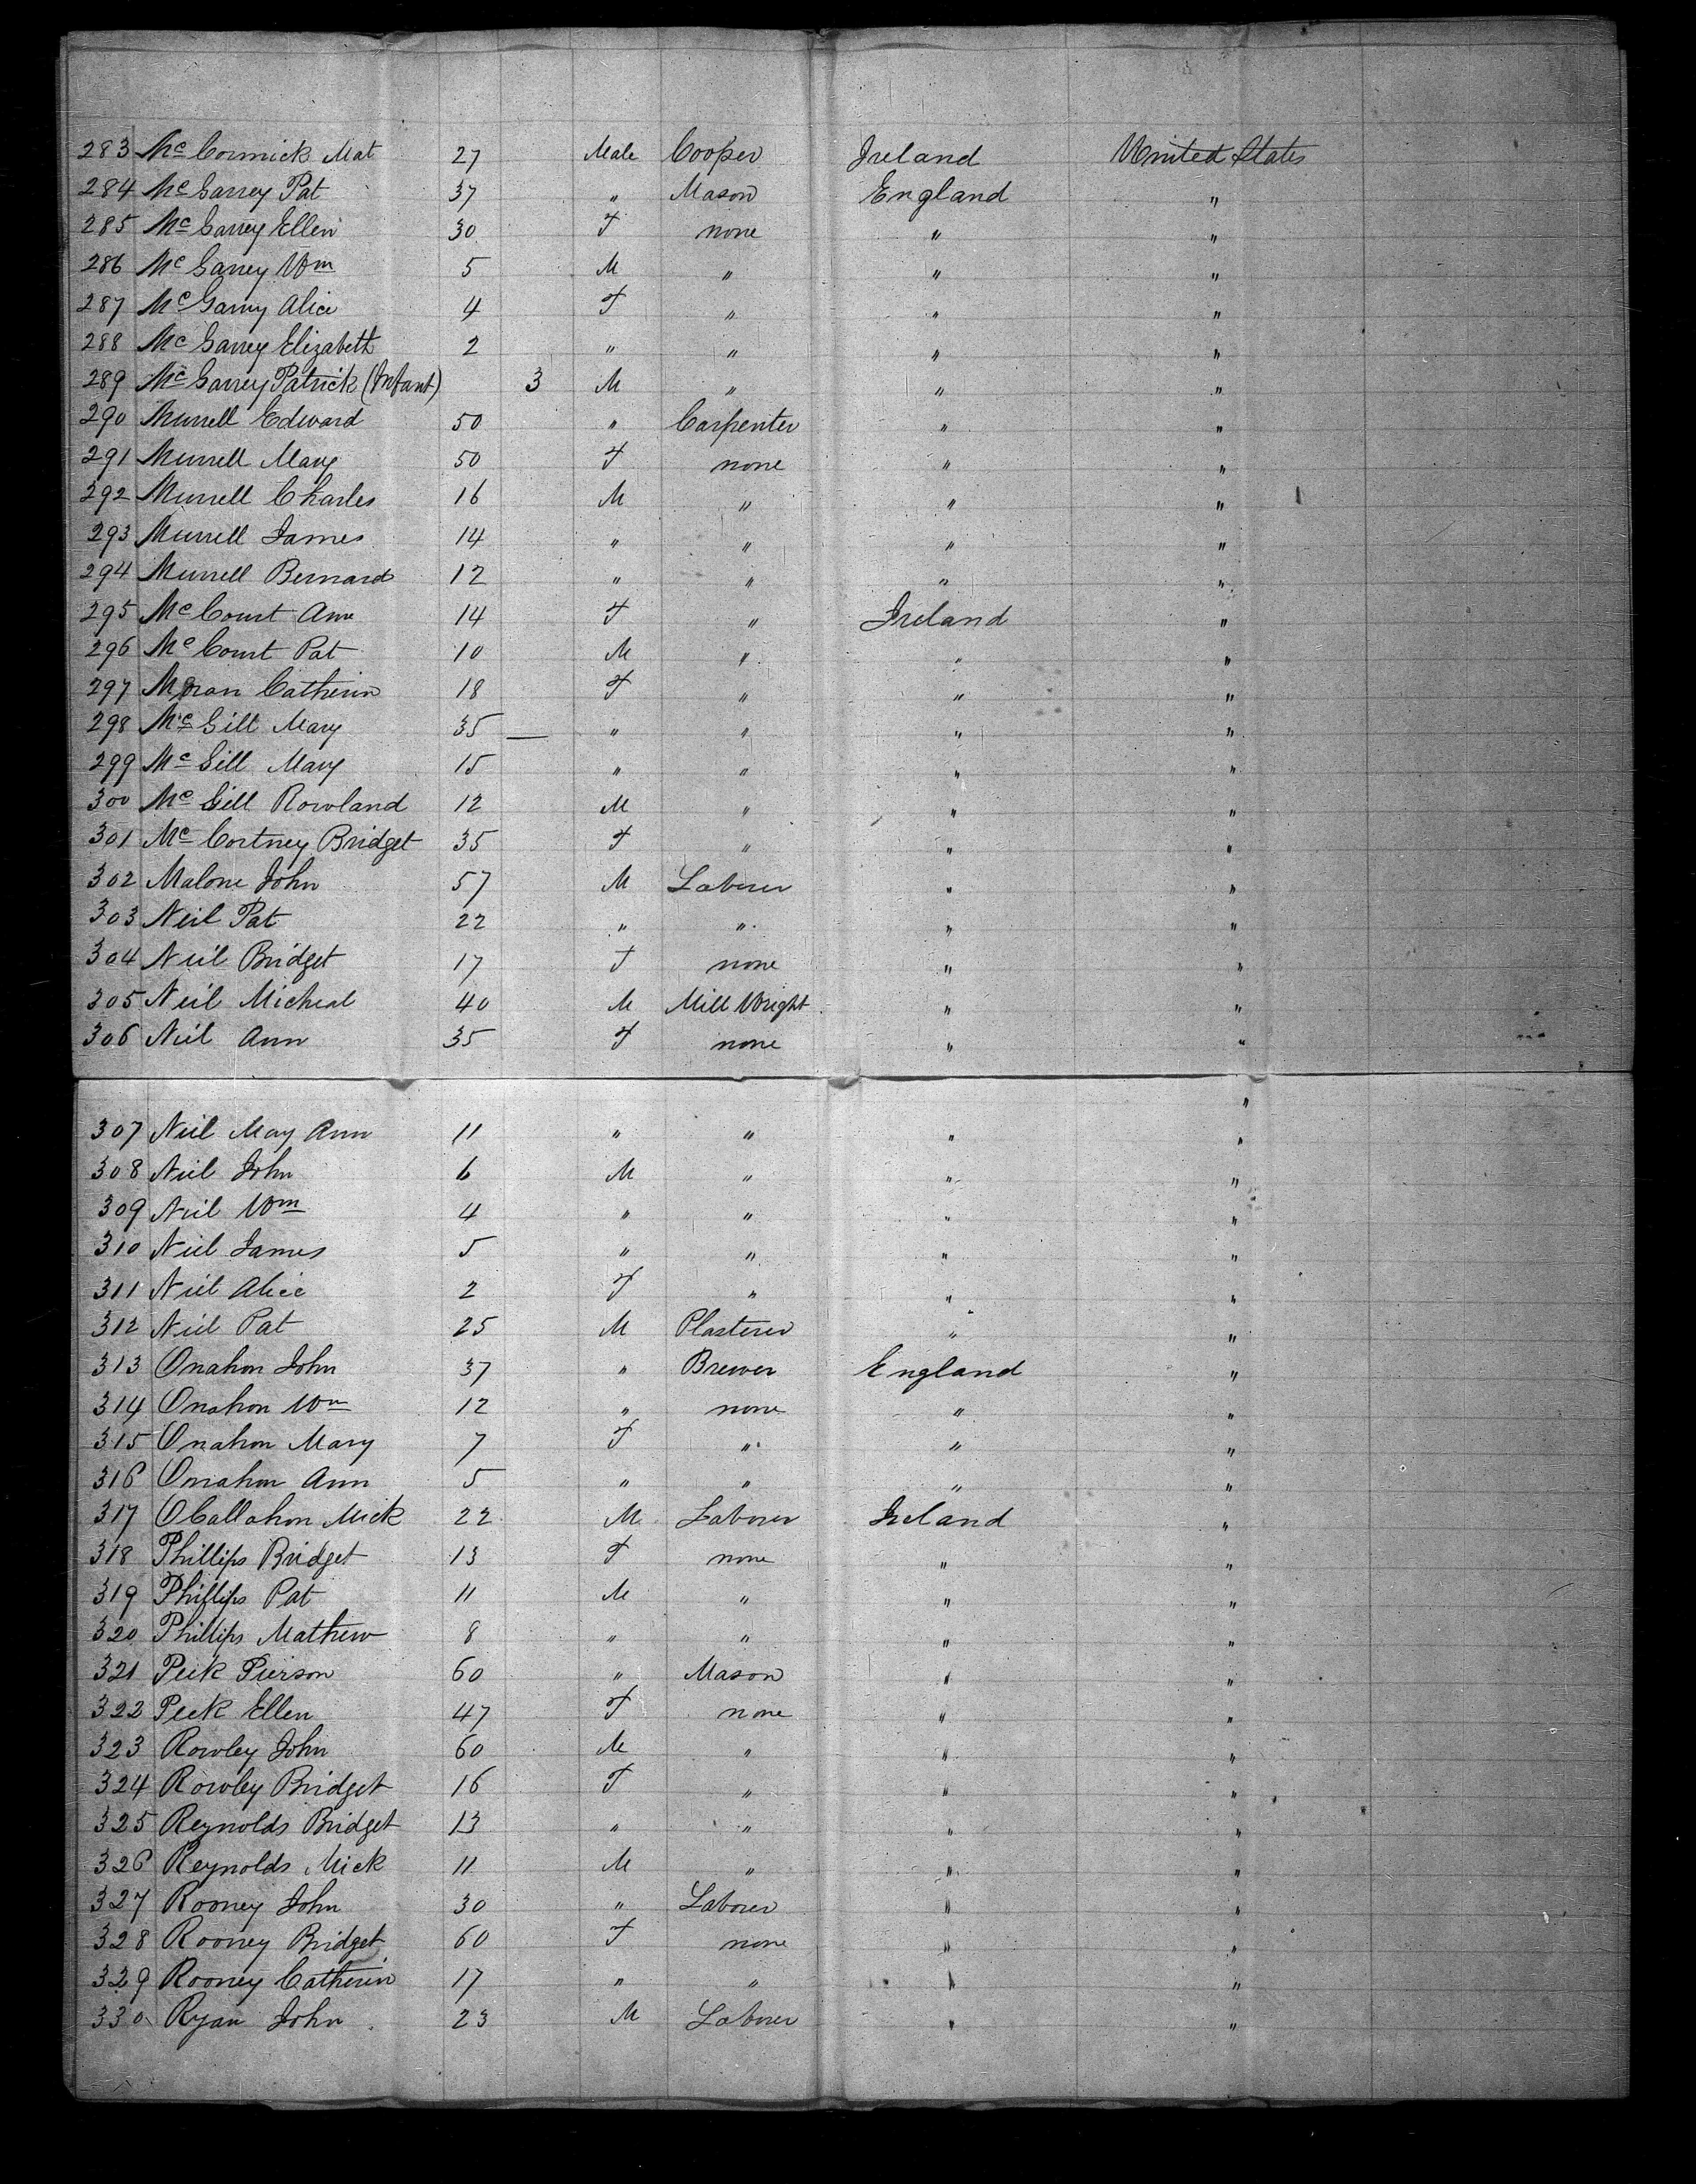 283 Mc Cormick Mat 27 Male Cooper Ireland United States
284 Mc Garrey Pat 37 " Mason England "
285 Mc Garrey Ellen 30 F none " "
286 Mc Garrey Wm 5 M " " "
287 Mc Garrey Alice 4 F " " "
288 Mc Garrey Elizabeth 2 " " " "
289 Mc Garrey Patrick (Infant) 3 M " " "
290 Murrell Edward 50 " Carpenter " "
291 Murrell Mary 50 F none " "
292 Murrell Charles 16 M " " "
293 Murrell James 14 " " " "
294 Murrell Bernard 12 " " " "
295 Mc Court Ann 14 F " Ireland "
296 Mc Court Pat 10 M " " "
297 Moran Catherin 18 F " " "
298 Mc Gill Mary 35 — " " " "
299 Mc Gill Mary 15 " " " "
300 Mc Gill Rowland 12 M " " "
301 Mc Cortney Bridget 35 F " " "
302 Malone John 57 M Laborer " "
303 Neil Pat 22 " " " "
304 Neil Bridget 17 F none " "
305 Neil Micheal 40 M Mill Wright " "
306 Neil Ann 35 F none " "
"
307 Neil May Ann 11 " " " "
308 Neil John 6 M " " "
309 Neil Wm 4 " " " "
310 Neil James 5 " " " "
311 Neil Alice 2 F " " "
312 Neil Pat 25 M Plasterer " "
313 Onahon John 37 " Brewer England "
314 Onahon Wm 12 " none " "
315 Onahon Mary 7 F " " "
316 Onahon Ann 5 " " " "
317 OCallahon Mick 22 M Laborer Ireland "
318 Phillips Bridget 13 F none " "
319 Phillips Pat 11 M " " "
320 Phillips Mathew 8 " " " "
321 Peek Pierson 60 " Mason " "
322 Peek Ellen 47 F none " "
323 Rowley John 60 M " " "
324 Rowley Bridget 16 F " " "
325 Reynolds Bridget 13 " " " "
326 Reynolds Mick 11 M " " "
327 Rooney John 30 " Laborer " "
328 Rooney Bridget 60 F none " "
329 Rooney Catherin 17 " " " "
330 Ryan John 23 M Laborer " "